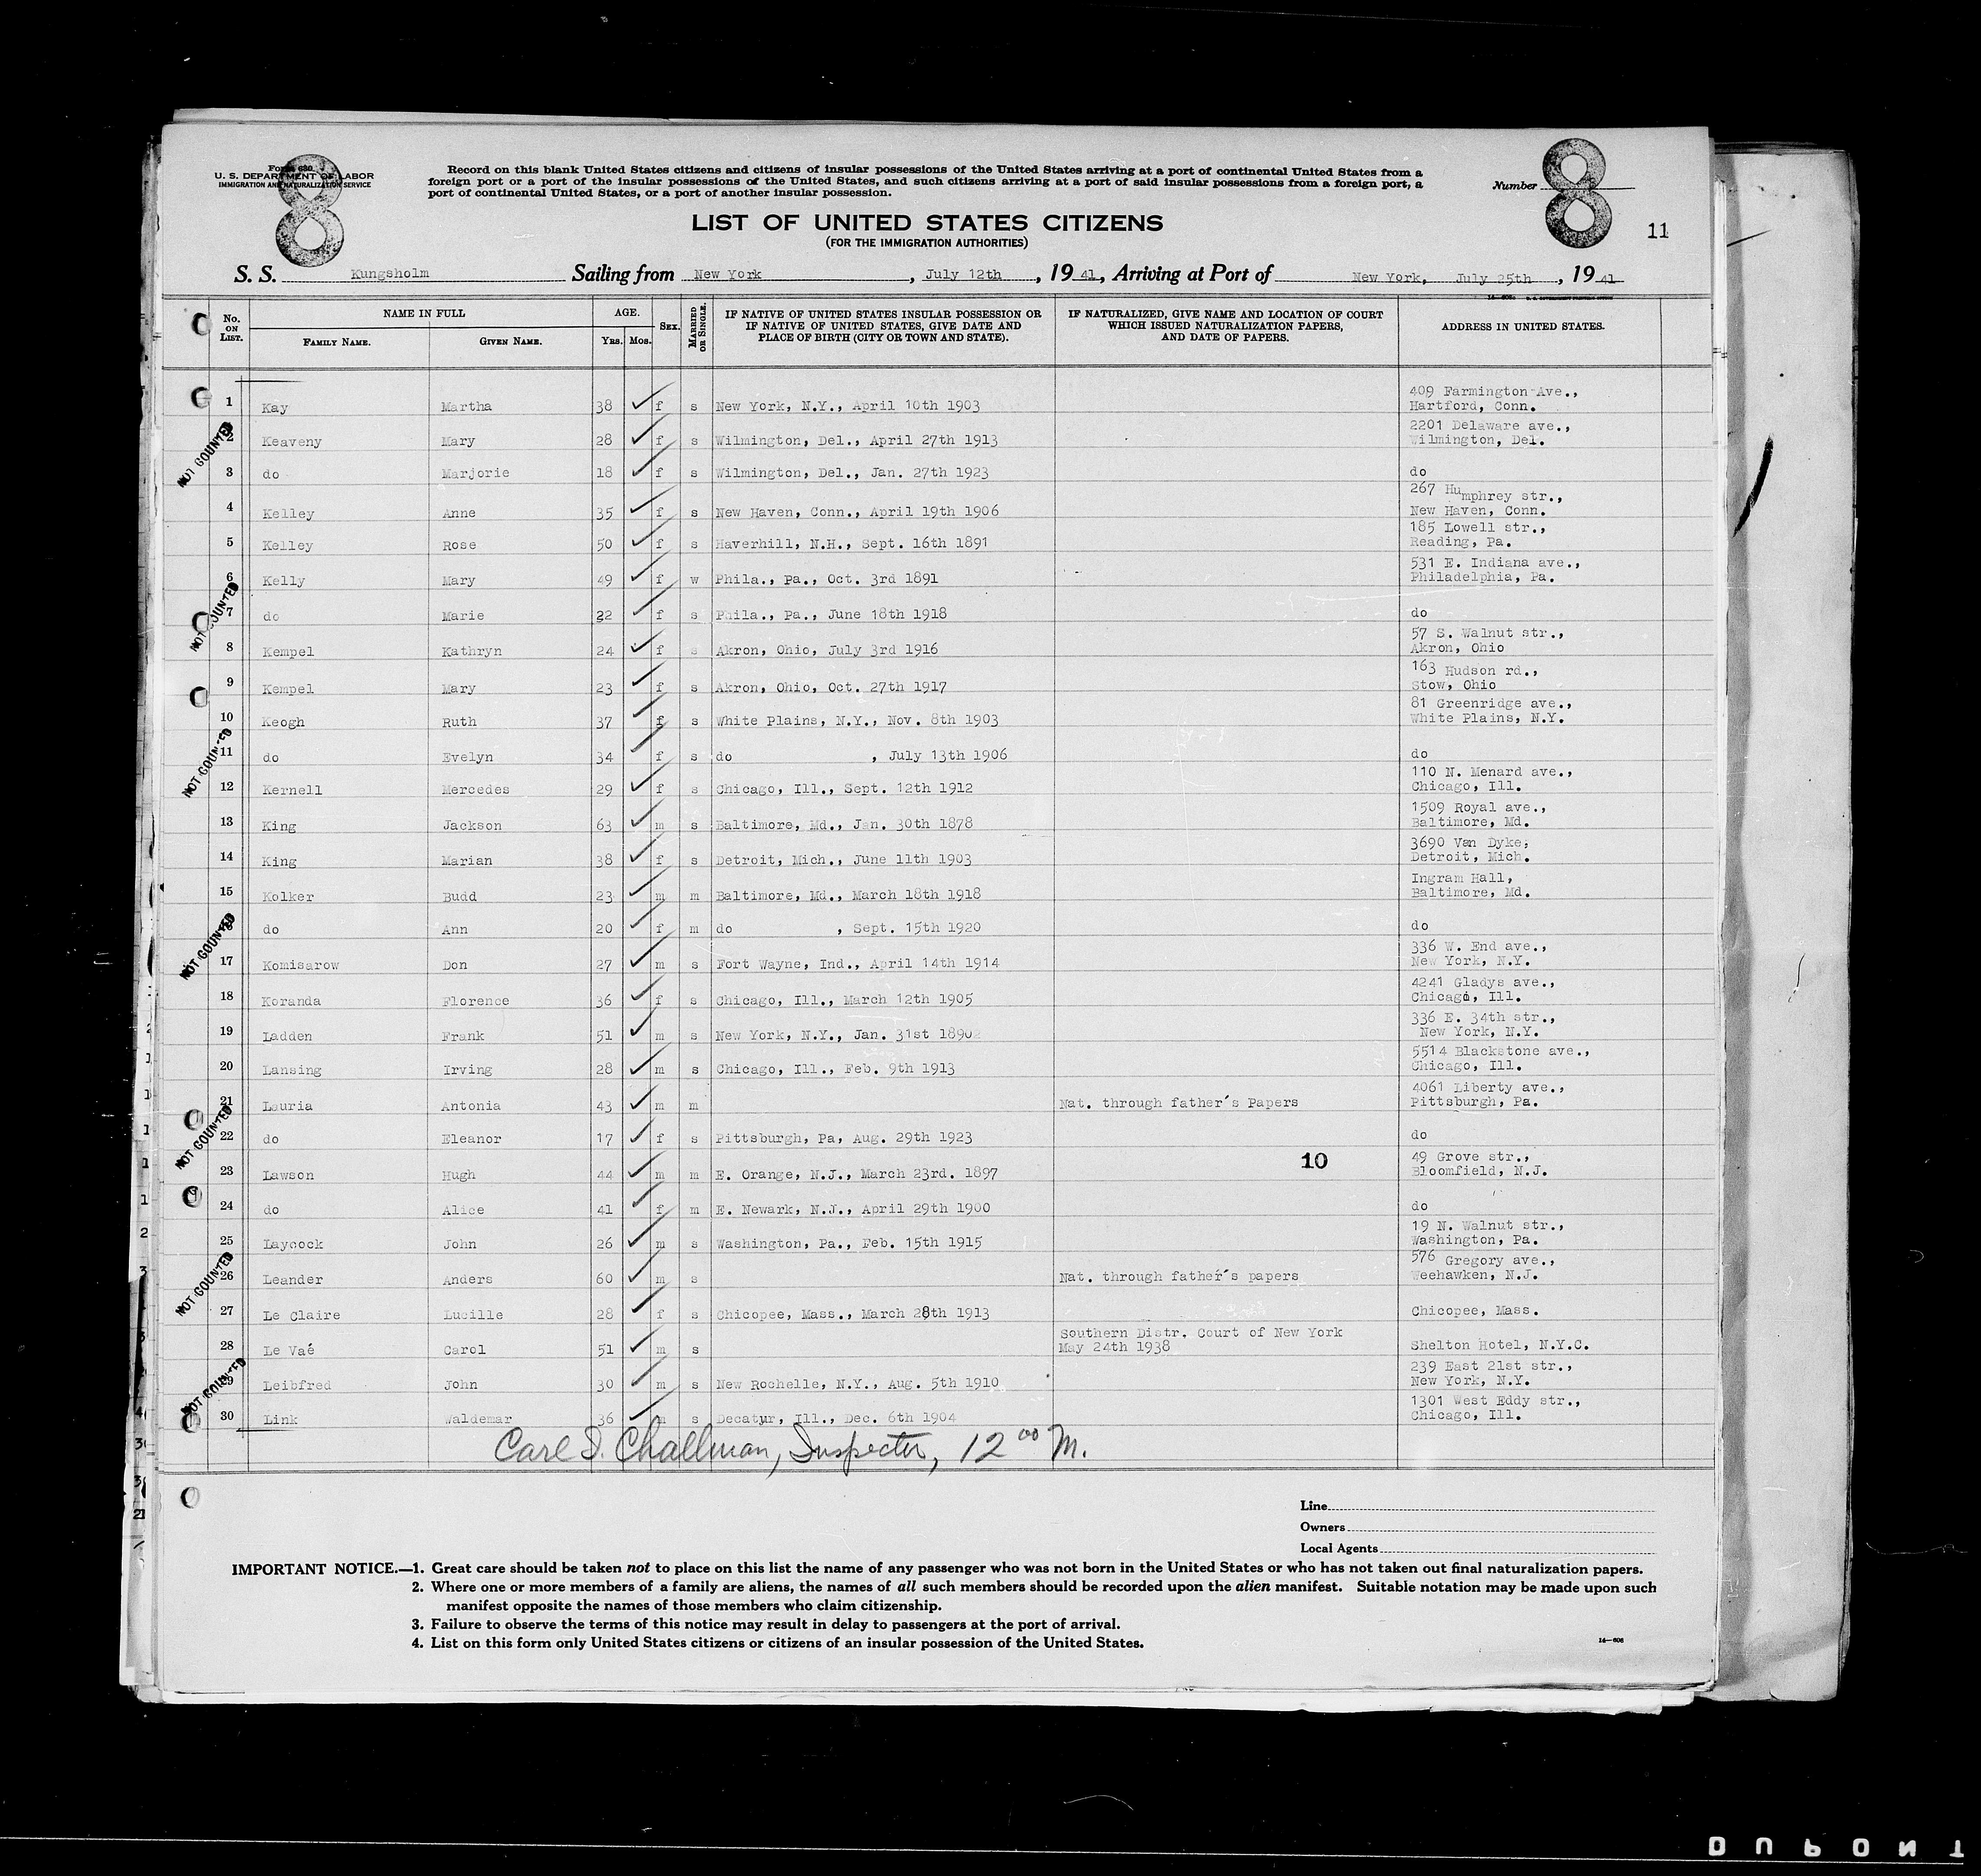 Form 630
U. S. DEPARTMENT OF LABOR
IMMIGRATION AND NATURALIZATION SERVICE
8
Record on this blank United States citizens and citizens of insular possessions of the United States arriving at a port of continental United States from a
foreign port or a port of the insular possessions of the United States, and such citizens arriving at a port of said insular possessions from a foreign port, a
port of continental United States, or a port of another insular possession.
Number 8
11
LIST OF UNITED STATES CITIZENS
(FOR THE IMMIGRATION AUTHORITIES)
S. S. Kungsholm Sailing from New York, July 12th, 19 41, Arriving at Port of New York, July 25th, 19 41
No. ON LIST. NAME IN FULL FAMILY NAME. GIVEN NAME. AGE. YRS. MOS. SEX. MARRIED OR SINGLE.
IF NATIVE OF UNITED STATES INSULAR POSSESSION OR
IF NATIVE OF UNITED STATES, GIVE DATE AND
PLACE OF BIRTH (CITY OR TOWN AND STATE).
IF NATURALIZED, GIVE NAME AND LOCATION OF COURT
WHICH ISSUED NATURALIZATION PAPERS,
AND DATE OF PAPERS.
ADDRESS IN UNITED STATES.
1 Kay Martha 38 f s New York, N.Y., April 10th 1903 409 Farmington Ave.,
Hartford, Conn.
NOT COUNTED
2 Keaveny Mary 28 f s Wilmington, Del., April 27th 1913 2201 Delaware ave.,
Wilmington, Del.
3 do Marjorie 18 f s Wilmington, Del., Jan. 27th 1923 do
4 Kelley Anne 35 f s New Haven, Conn., April 19th 1906 267 Humphrey str.,
New Haven, Conn.
5 Kelley Rose 50 f s Haverhill, N.H., Sept. 16th 1891 185 Lowell str.,
Reading, Pa.
6 Kelly Mary 49 f w Phila., Pa., Oct. 3rd 1891 531 E. Indiana ave.,
Philadelphia, Pa.
NOT COUNTED
7 do Marie 22 f s Phila., Pa., June 18th 1918 do
8 Kempel Kathryn 24 f s Akron, Ohio, July 3rd 1916 57 S. Walnut str.,
Akron, Ohio
9 Kempel Mary 23 f s Akron, Ohio, Oct. 27th 1917 163 Hudson rd.,
Stow, Ohio
10 Keogh Ruth 37 f s White Plains, N.Y., Nov. 8th 1903 81 Greenridge ave.,
White Plains, N.Y.
NOT COUNTED
11 do Evelyn 34 f s do , July 13th 1906 do
12 Kernell Mercedes 29 f s Chicago, Ill., Sept. 12th 1912 110 N. Menard ave.,
Chicago, Ill.
13 King Jackson 63 m s Baltimore, Md., Jan. 30th 1878 1509 Royal ave.,
Baltimore, Md.
14 King Marian 38 f s Detroit, Mich., June 11th 1903 3690 Van Dyke,
Detroit, Mich.
15 Kolker Budd 23 m m Baltimore, Md., March 18th 1918 Ingram Hall,
Baltimore, Md.
NOT COUNTED
16 do Ann 20 f m do , Sept. 15th 1920 do
17 Komisarow Don 27 m s Fort Wayne, Ind., April 14th 1914 336 W. End ave.,
New York, N.Y.
18 Koranda Florence 36 f s Chicago, Ill., March 12th 1905 4241 Gladys ave.,
Chicago, Ill.
19 Ladden Frank 51 m s New York, N.Y., Jan. 31st 1890 336 E. 34th str.,
New York, N.Y.
20 Lansing Irving 28 m s Chicago, Ill., Feb. 9th 1913 5514 Blackstone ave.,
Chicago, Ill.
21 Lauria Antonia 43 m m Nat. through father's Papers 4061 Liberty ave.,
Pittsburgh, Pa.
NOT COUNTED
22 do Eleanor 17 f s Pittsburgh, Pa, Aug. 29th 1923 do
10
23 Lawson Hugh 44 m m E. Orange, N.J., March 23rd. 1897 49 Grove str.,
Bloomfield, N.J.
24 do Alice 41 f m E. Newark, N.J., April 29th 1900 do
25 Laycock John 26 m s Washington, Pa., Feb. 15th 1915 19 N. Walnut str.,
Washington, Pa.
NOT COUNTED
26 Leander Anders 60 m s Nat. through father's papers 576 Gregory ave.,
Weehawken, N.J.
27 Le Claire Lucille 28 f s Chicopee, Mass., March 28th 1913 Chicopee, Mass.
28 Le Vaé Carol 51 m s Southern Distr. Court of New York
May 24th 1938 Shelton Hotel, N.Y.C.
NOT COUNTED
29 Leibfred John 30 m s New Rochelle, N.Y., Aug. 5th 1910 239 East 21st str.,
New York, N.Y.
30 Link Waldemar 36 m s Decatur, Ill., Dec. 6th 1904 1301 West Eddy str.,
Chicago, Ill.
Carl S. Challman, Inspector, 12 00 M.
Line
Owners
Local Agents
IMPORTANT NOTICE.—1. Great care should be taken not to place on this list the name of any passenger who was not born in the United States or who has not taken out final naturalization papers.
2. Where one or more members of a family are aliens, the names of all such members should be recorded upon the alien manifest. Suitable notation may be made upon such
manifest opposite the names of those members who claim citizenship.
3. Failure to observe the terms of this notice may result in delay to passengers at the port of arrival.
4. List on this form only United States citizens or citizens of an insular possession of the United States.
14—606
DUPONT